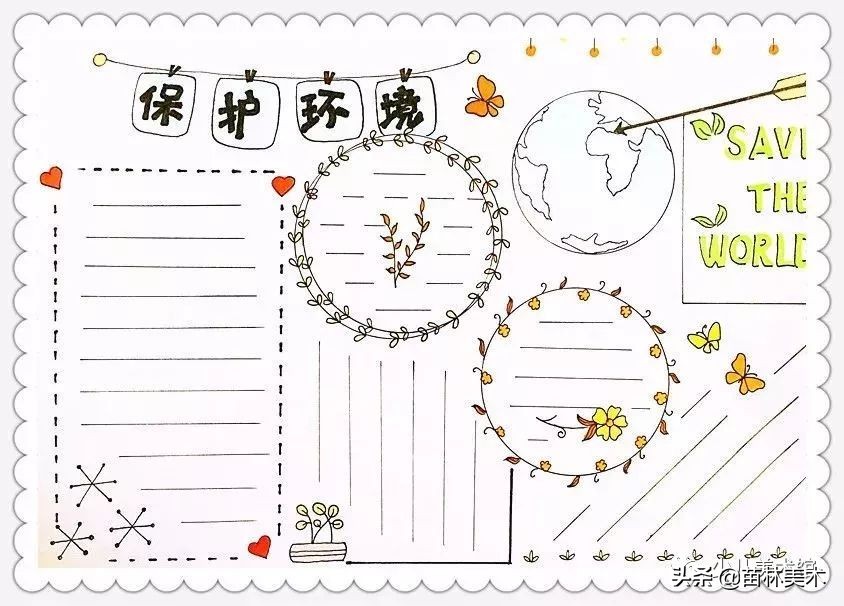 保护环境
SAVE
THE
WORLD
头条 @苗林美术